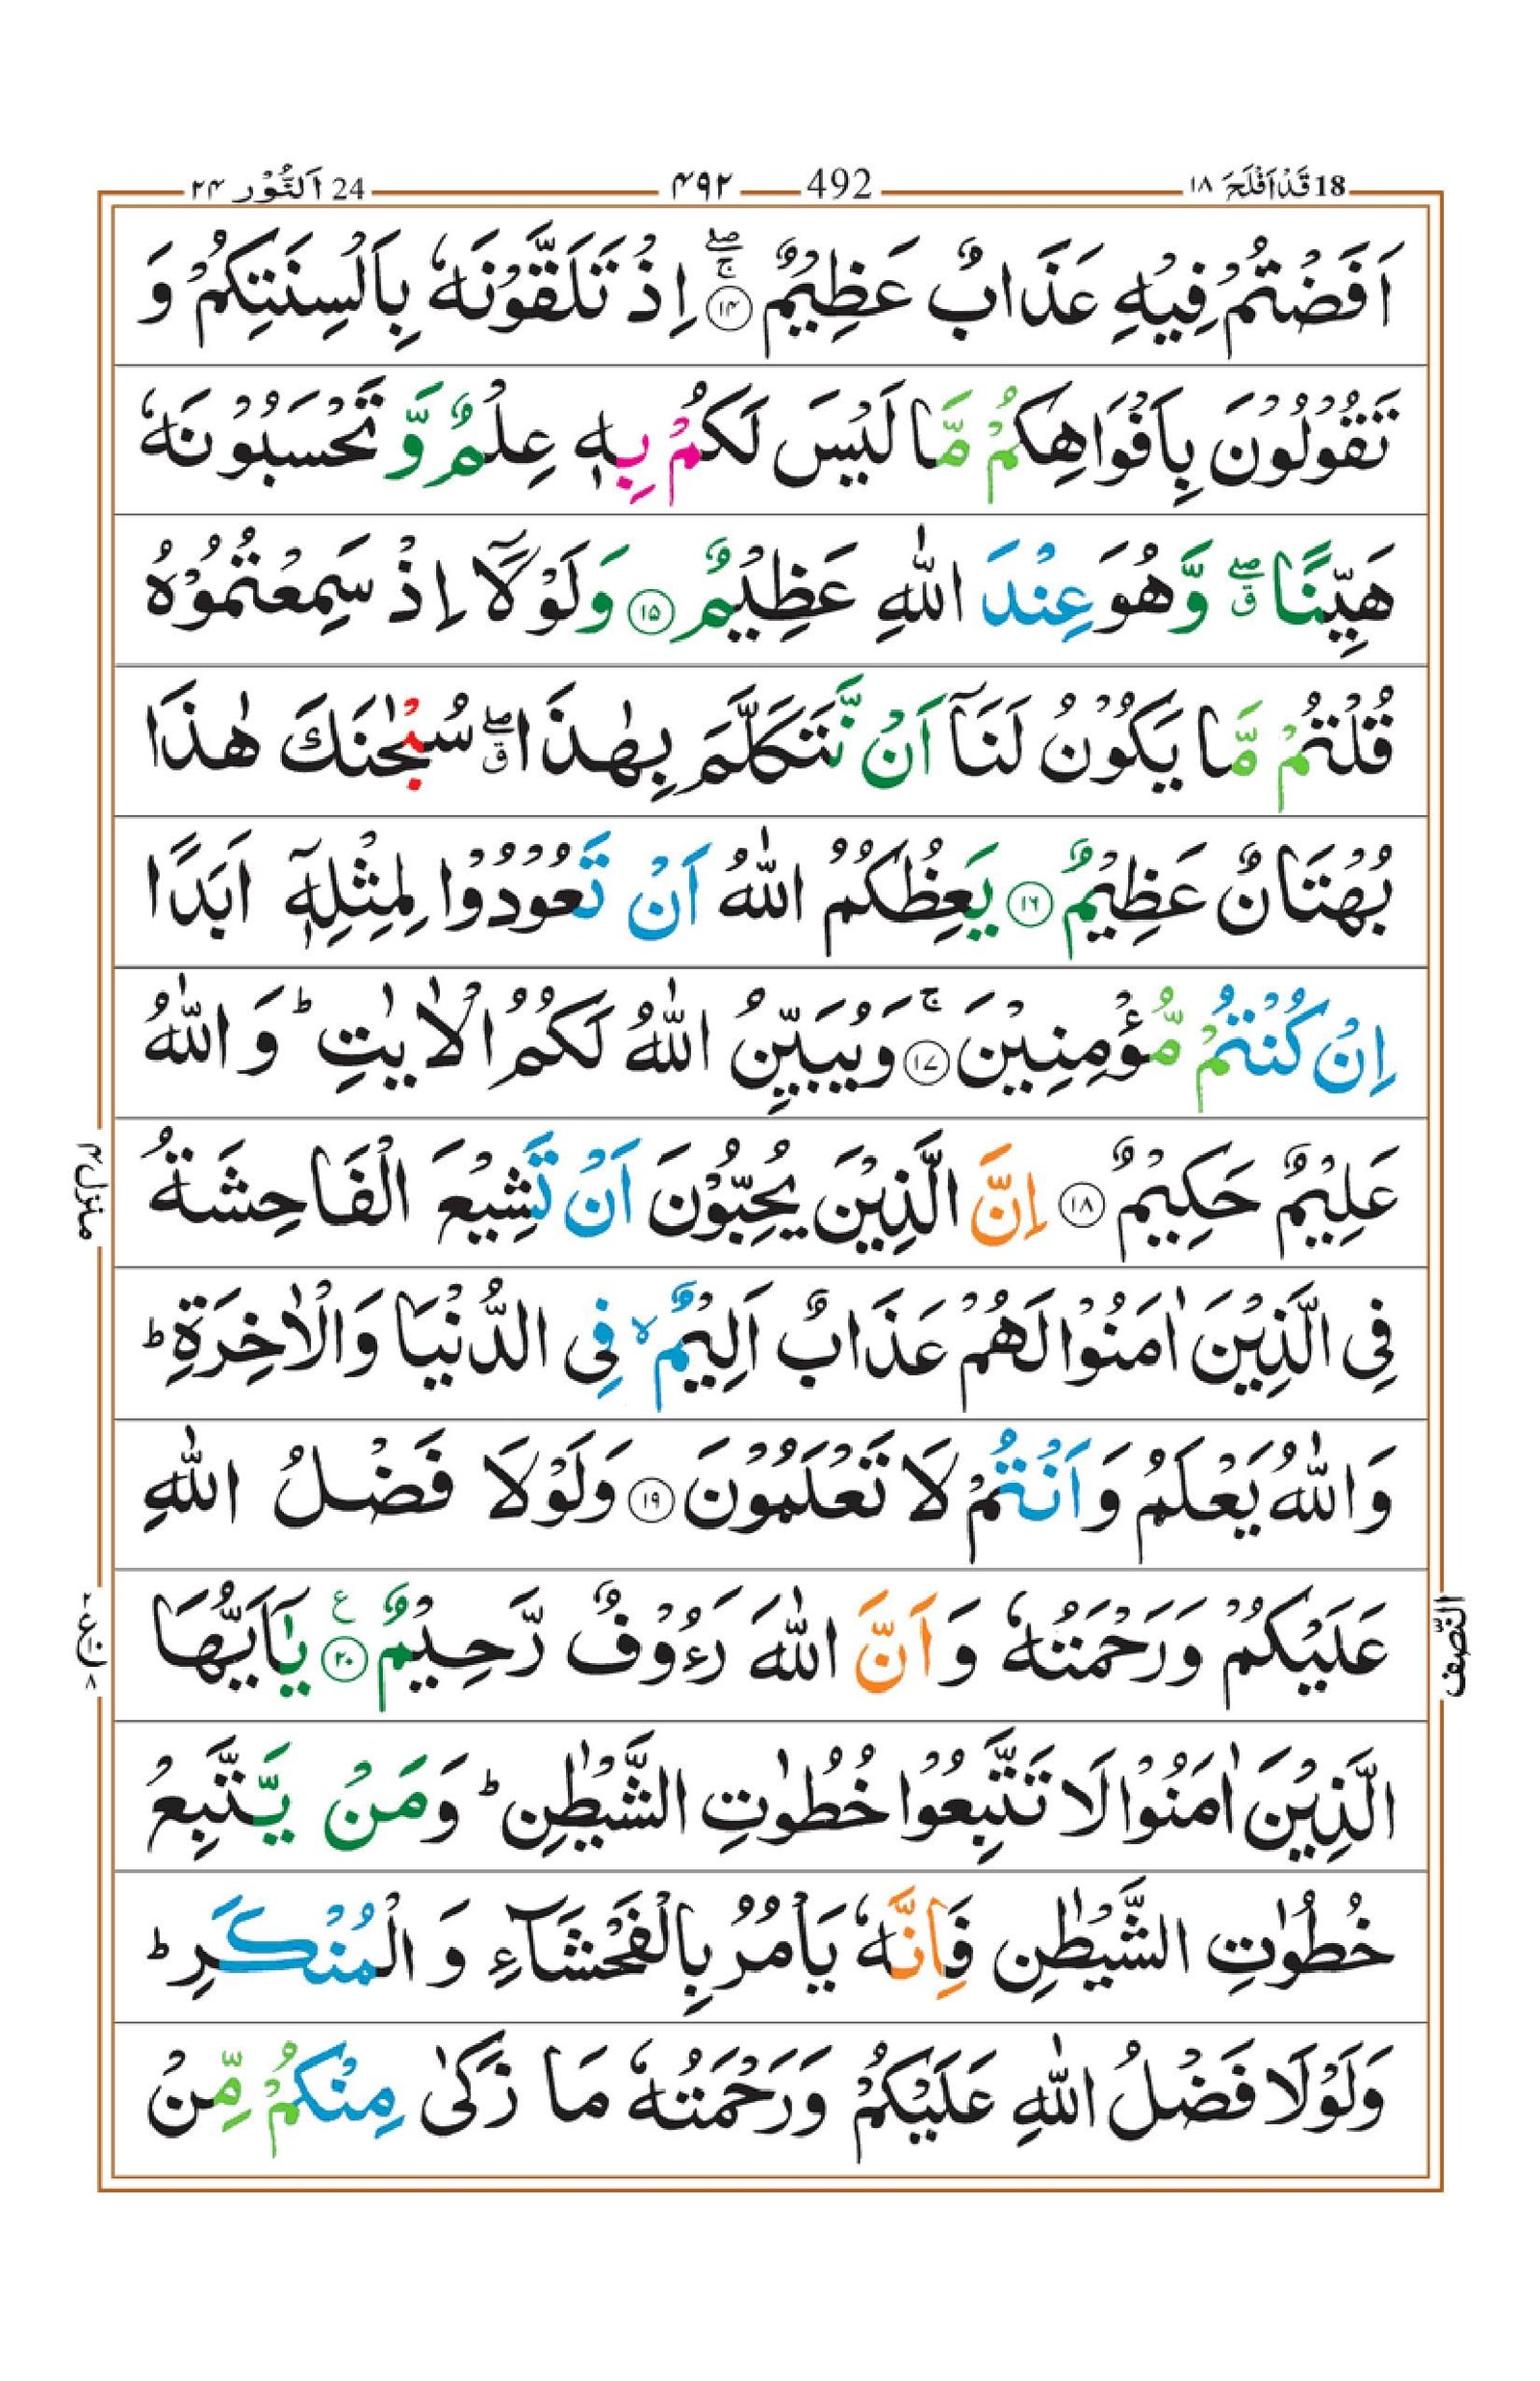 18 قَدْ اَفْلَحَ ۱۸ 492 ۴۹۲ 24 اَلنُّوْر ۲۴
اَفَضْتُمْ فِيْهِ عَذَابٌ عَظِيْمٌ ۝۱۴ ۚۖ اِذْ تَلَقَّوْنَهٗ بِاَلْسِنَتِكُمْ وَ
تَقُوْلُوْنَ بِاَفْوَاهِكُمْ مَّا لَيْسَ لَكُمْ بِهٖ عِلْمٌ وَّ تَحْسَبُوْنَهٗ
هَيِّنًا ۖۗ وَّ هُوَ عِنْدَ اللّٰهِ عَظِيْمٌ ۝۱۵ وَلَوْلَاۤ اِذْ سَمِعْتُمُوْهُ
قُلْتُمْ مَّا يَكُوْنُ لَنَاۤ اَنْ نَّتَكَلَّمَ بِهٰذَا ۖۗ سُبْحٰنَكَ هٰذَا
بُهْتَانٌ عَظِيْمٌ ۝۱۶ يَعِظُكُمُ اللّٰهُ اَنْ تَعُوْدُوْا لِمِثْلِهٖۤ اَبَدًا
اِنْ كُنْتُمْ مُّؤْمِنِيْنَ ۚ ۝۱۷ وَيُبَيِّنُ اللّٰهُ لَكُمُ الْاٰيٰتِ ؕ وَ اللّٰهُ
عَلِيْمٌ حَكِيْمٌ ۝۱۸ اِنَّ الَّذِيْنَ يُحِبُّوْنَ اَنْ تَشِيْعَ الْفَاحِشَةُ
فِى الَّذِيْنَ اٰمَنُوْا لَهُمْ عَذَابٌ اَلِيْمٌ ۙ فِى الدُّنْيَا وَالْاٰخِرَةِ ؕ
وَاللّٰهُ يَعْلَمُ وَ اَنْتُمْ لَا تَعْلَمُوْنَ ۝۱۹ وَلَوْلَا فَضْلُ اللّٰهِ
عَلَيْكُمْ وَرَحْمَتُهٗ وَ اَنَّ اللّٰهَ رَءُوْفٌ رَّحِيْمٌ ۝۲۰ ع يٰۤاَيُّهَا
الَّذِيْنَ اٰمَنُوْا لَا تَتَّبِعُوْا خُطُوٰتِ الشَّيْطٰنِ ؕ وَ مَنْ يَّتَّبِعْ
خُطُوٰتِ الشَّيْطٰنِ فَاِنَّهٗ يَاْمُرُ بِالْفَحْشَآءِ وَ الْمُنْكَرِ ؕ
وَلَوْلَا فَضْلُ اللّٰهِ عَلَيْكُمْ وَرَحْمَتُهٗ مَا زَكٰى مِنْكُمْ مِّنْ
منزل ۴
النّصف